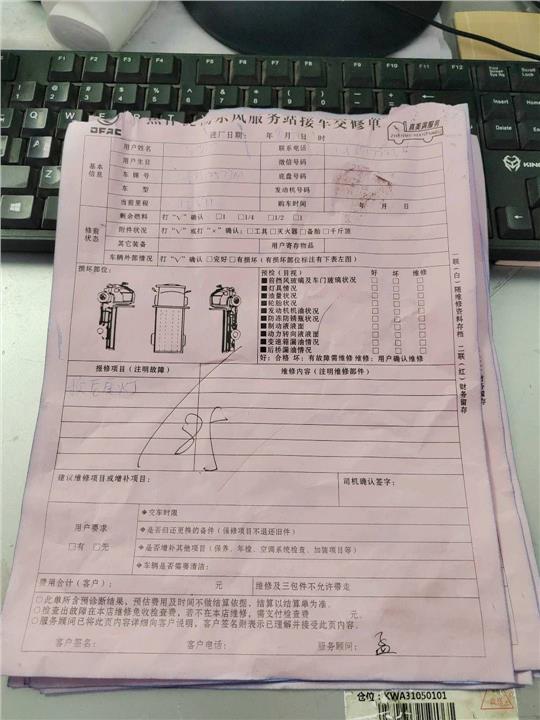 东风服务站接车交修单
DFAC
真美满服务
进厂日期： 年 月 日 时
基本信息
用户姓名
联系电话
用户生日
微信号码
车牌号
底盘号码
车 型
发动机号码
当前里程
购车时间 年 月 日
修前状态
剩余燃料 打“√”确认 □1 □1/4 □1/2 □1
附件状况 打“√”或打“×”确认：□工具 □灭火器 □备胎 □千斤顶
其它装备 用户寄存物品
车辆外部情况 打“√”确认 □完好 □有损（有损部位标注有下表左图）
损坏部位：
预检（目视） 好 坏 维修
■前挡风玻璃及车门玻璃状况
■灯具情况
■油量状况
■轮胎状况
■发动机机油状况
■防冻防锈瓶状况
■制动液液面
■动力转向液液面
■变速箱漏油情况
■后桥漏油情况
好：合格 坏：有故障需维修 维修：用户确认维修
一联（白）随维修资料存档 二联（红）财务留存
报修项目（注明故障） 维修内容（注明维修部件）
建议维修项目或增补项目： 司机确认签字：
用户要求
□有 □无
◆交车时限
◆是否归还更换的备件（保修项目不退还旧件）
◆是否增补其他项目（保养、年检、空调系统检查、加装项目等）
◆车辆是否需要清洁：
费用合计（客户）： 元 维修及三包件不允许带走
○此单所含预诊断结果，预估费用及时间不做结算依据，结算以结算单为准。
○检查出故障在本店维修免收检查费，若不在本店维修，需支付检查费 元。
○服务顾问已将此页内容详细向客户说明，客户签名则表示已理解并接受此页内容。
客户签名： 客户电话： 服务顾问： 孟
仓位：KWA31050101